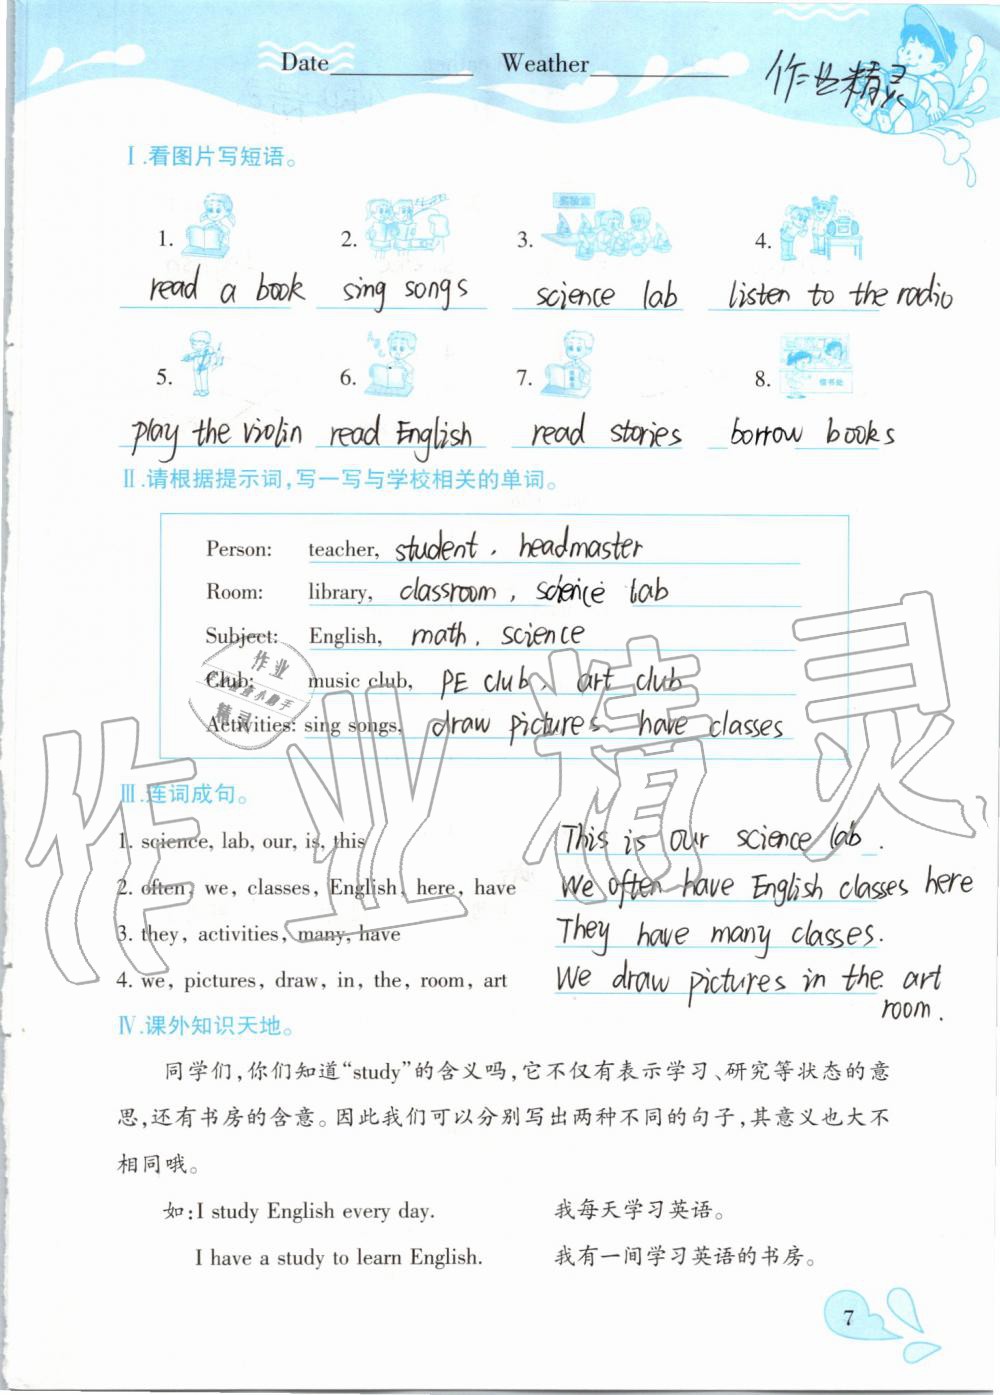 Date Weather
作业精灵
Ⅰ.看图片写短语。
实验室
1. 2. 3. 4.
read a book sing songs science lab listen to the radio
5. 6. 7. 8.
借书处
play the violin read English read stories borrow books
Ⅱ.请根据提示词,写一写与学校相关的单词。
Person: teacher, student, headmaster
Room: library, classroom, science lab
Subject: English, math, science
Club: music club, PE club, art club
Activities: sing songs, draw pictures have classes
作业
检查小助手
精灵
作业精灵
Ⅲ.连词成句。
1. science, lab, our, is, this This is our science lab.
2. often, we, classes, English, here, have We often have English classes here
3. they, activities, many, have They have many classes.
4. we, pictures, draw, in, the, room, art We draw pictures in the art
room.
Ⅳ.课外知识天地。
同学们,你们知道“study”的含义吗,它不仅有表示学习、研究等状态的意
思,还有书房的含意。因此我们可以分别写出两种不同的句子,其意义也大不
相同哦。
如:I study English every day. 我每天学习英语。
I have a study to learn English. 我有一间学习英语的书房。
7